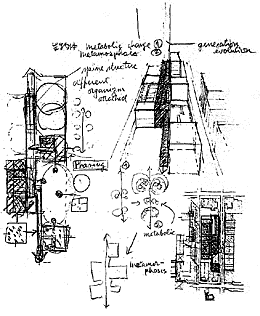 metabolic change ①
metamorphosis ②
generation
evolution
spine structure
different
organism
method
Phasing
①
②
metabolic
metamor-
phosis